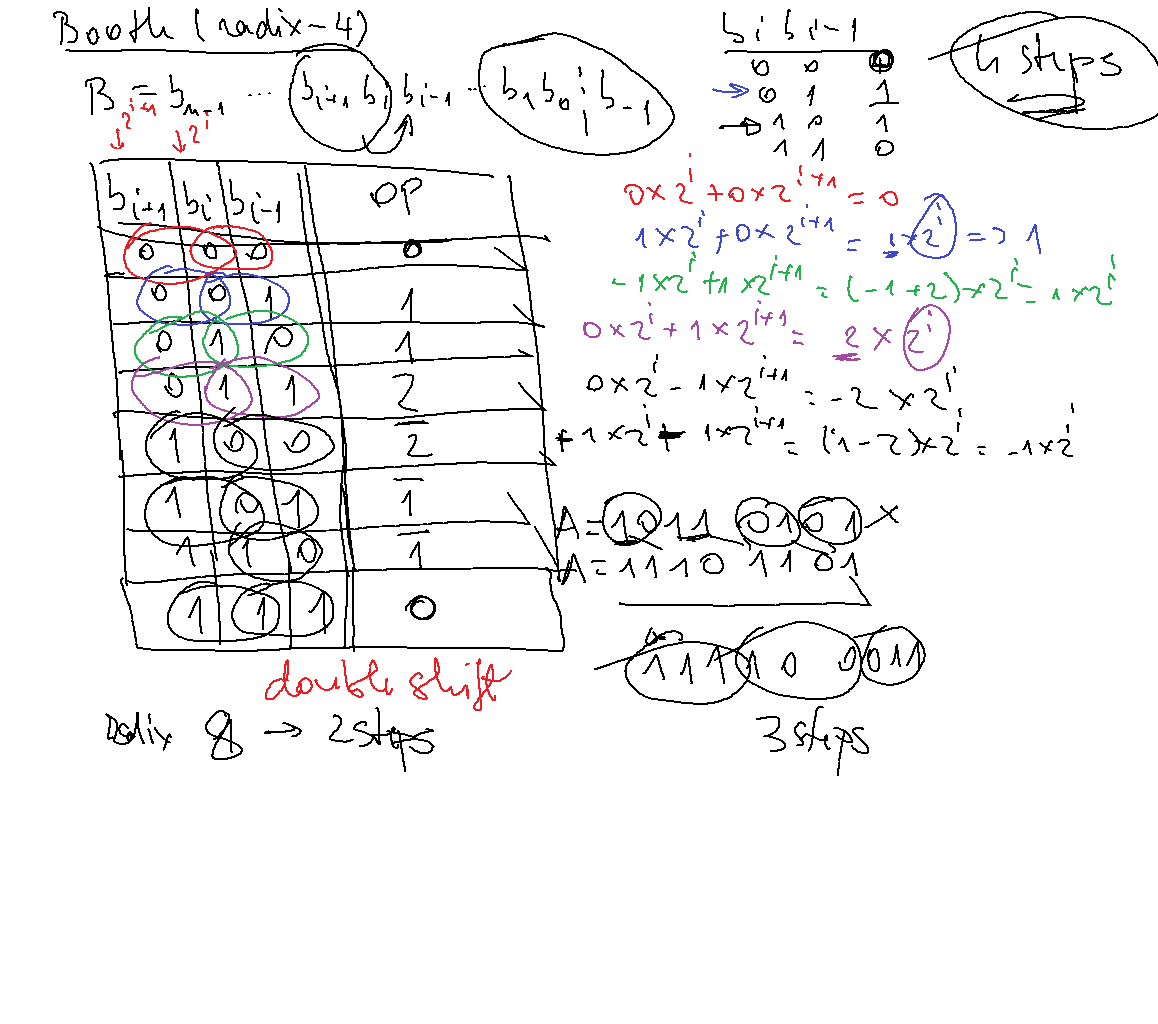 Booth (radix-4)
B = b_{n-1} ... b_{i+1} b_i b_{i-1} ... b_1 b_0 b_{-1}
2^{i+1} 2^i
b_{i+1} b_i b_{i-1} OP
0 0 0 0
0 0 1 1
0 1 0 1
0 1 1 2
1 0 0 2̅
1 0 1 1̅
1 1 0 1̅
1 1 1 0
double shift
radix 8 → 2 steps
b_i b_{i-1}
0 0 0
0 1 1
1 0 1̅
1 1 0
4 steps
0×2^i + 0×2^{i+1} = 0
1×2^i + 0×2^{i+1} = 1×2^i => 1
-1×2^i + 1×2^{i+1} = (-1+2)×2^i = 1×2^i
0×2^i + 1×2^{i+1} = 2×2^i
0×2^i - 1×2^{i+1} = -2×2^i
+1×2^i - 1×2^{i+1} = (1-2)×2^i = -1×2^i
A = 1011 0101 ×
A = 1110 1101
111 100 011
3 steps